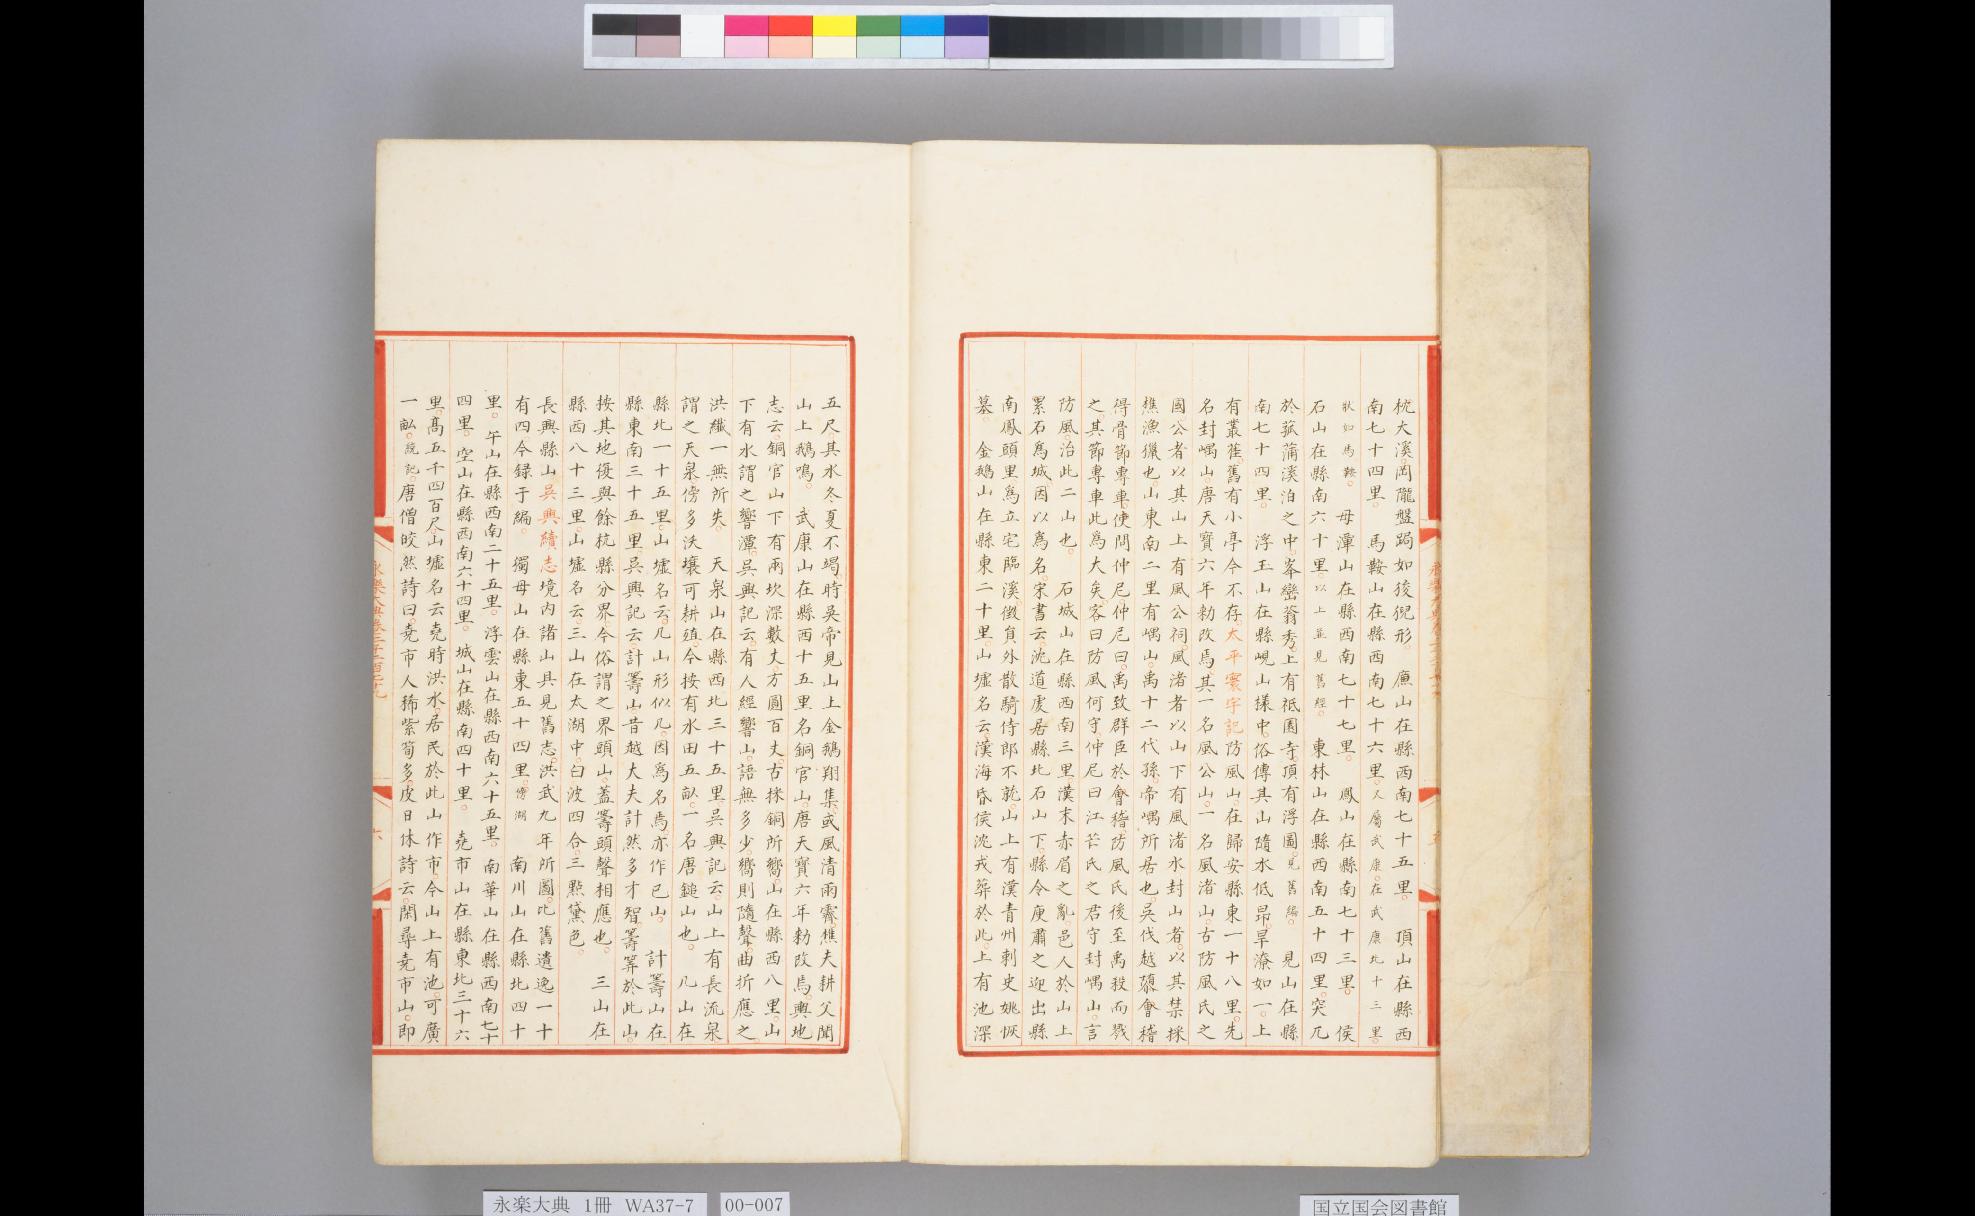 枕大溪岡隴盤跼如狻猊形。廡山在縣西南七十五里。頂山在縣西
南七十四里。馬鞍山在縣西南七十六里。又屬武康。在武康北十三里。
狀如馬鞍。母潬山在縣西南七十七里。鳳山在縣南七十三里。侯
石山在縣南六十里。以上並見舊經。東林山在縣西南五十四里。突兀
於菰蒲溪泊之中。峯巒蓊秀。上有祇園寺。頂有浮圖。見舊編。見山在縣
南七十四里。浮玉山在縣峴山檨中。俗傳其山隨水低昂。旱潦如一。上
有叢萑。舊有小亭今不存。太平寰宇記防風山。在歸安縣東一十八里。先
名封嵎山。唐天寶六年勑改焉。其一名風公山。一名風渚山。古防風氏之
國公者以其山上有風公祠。風渚者以山下有風渚水封山者。以其禁採
樵漁獵也。山東南二里有嵎山。禹十二代孫。帝嵎所居也。吳伐越隳會稽
得骨節專車。使問仲尼仲尼曰。禹致群臣於會稽。防風氏後至禹殺而戮
之。其節專車此爲大矣。客曰防風何守。仲尼曰江芒氏之君守封嵎山。言
防風。治此二山也。石城山在縣西南三里。漢末赤眉之亂。邑人於山上
累石爲城因以爲名。宋書云。沈道虔居縣北石山下。縣令庾肅之迎出縣
南鳳頭里爲立宅臨溪徴員外散騎侍郎不就。山上有漢青州刺史姚恢
墓。金鵝山在縣東二十里。山墟名云。漢海昏侯沈戎葬於此。上有池深
五尺其水冬夏不竭。時吳帝見山上金鵝翔集。或風清雨霽。樵夫耕父聞
山上鵝鳴。武康山在縣西十五里名銅官山。唐天寶六年勑改焉。輿地
志云。銅官山下有兩坎深數丈。方圓百丈。古採銅所嚮。山在縣西八里。山
下有水謂之響潭。吳興記云。有人經響山。語無多少。嚮則隨聲。曲折應之。
洪纖一無所失。天泉山在縣西北三十五里。吳興記云。山上有長流泉。
謂之天泉傍多沃壤可耕殖。今按有水田五畝。一名唐鎚山也。几山在
縣北一十五里。山墟名云。几山形似几。因爲名焉。亦作已山。計籌山在
縣東南三十五里吳興記云。計籌山。昔越大夫計然多才智籌筭於此山。
按其地復與餘杭縣分界。今俗謂之界頭山。蓋籌頭聲相應也。三山在
縣西八十三里。山墟名云。三山在太湖中。白波四合。三點黛色。
長興縣山吳興續志境内諸山具見舊志。洪武九年所圖。比舊遺逸一十
有四今録于編。獨母山在縣東五十四里。傍湖南川山在縣北四十
里。午山在縣西南二十五里。浮雲山在縣西南六十五里。南華山在縣西南七十
四里。空山在縣西南六十四里。城山在縣南四十里。堯市山在縣東北三十六
里。髙五千四百尺。山墟名云堯時洪水。居民於此山作市。今山上有池。可廣
一畝。統記。唐僧皎然詩曰。堯市人稀紫筍多。皮日休詩云。閑尋堯市山。即
永樂大典卷二千二百七十九
六
永楽大典 1冊 WA37-7 00-007
国立国会図書館